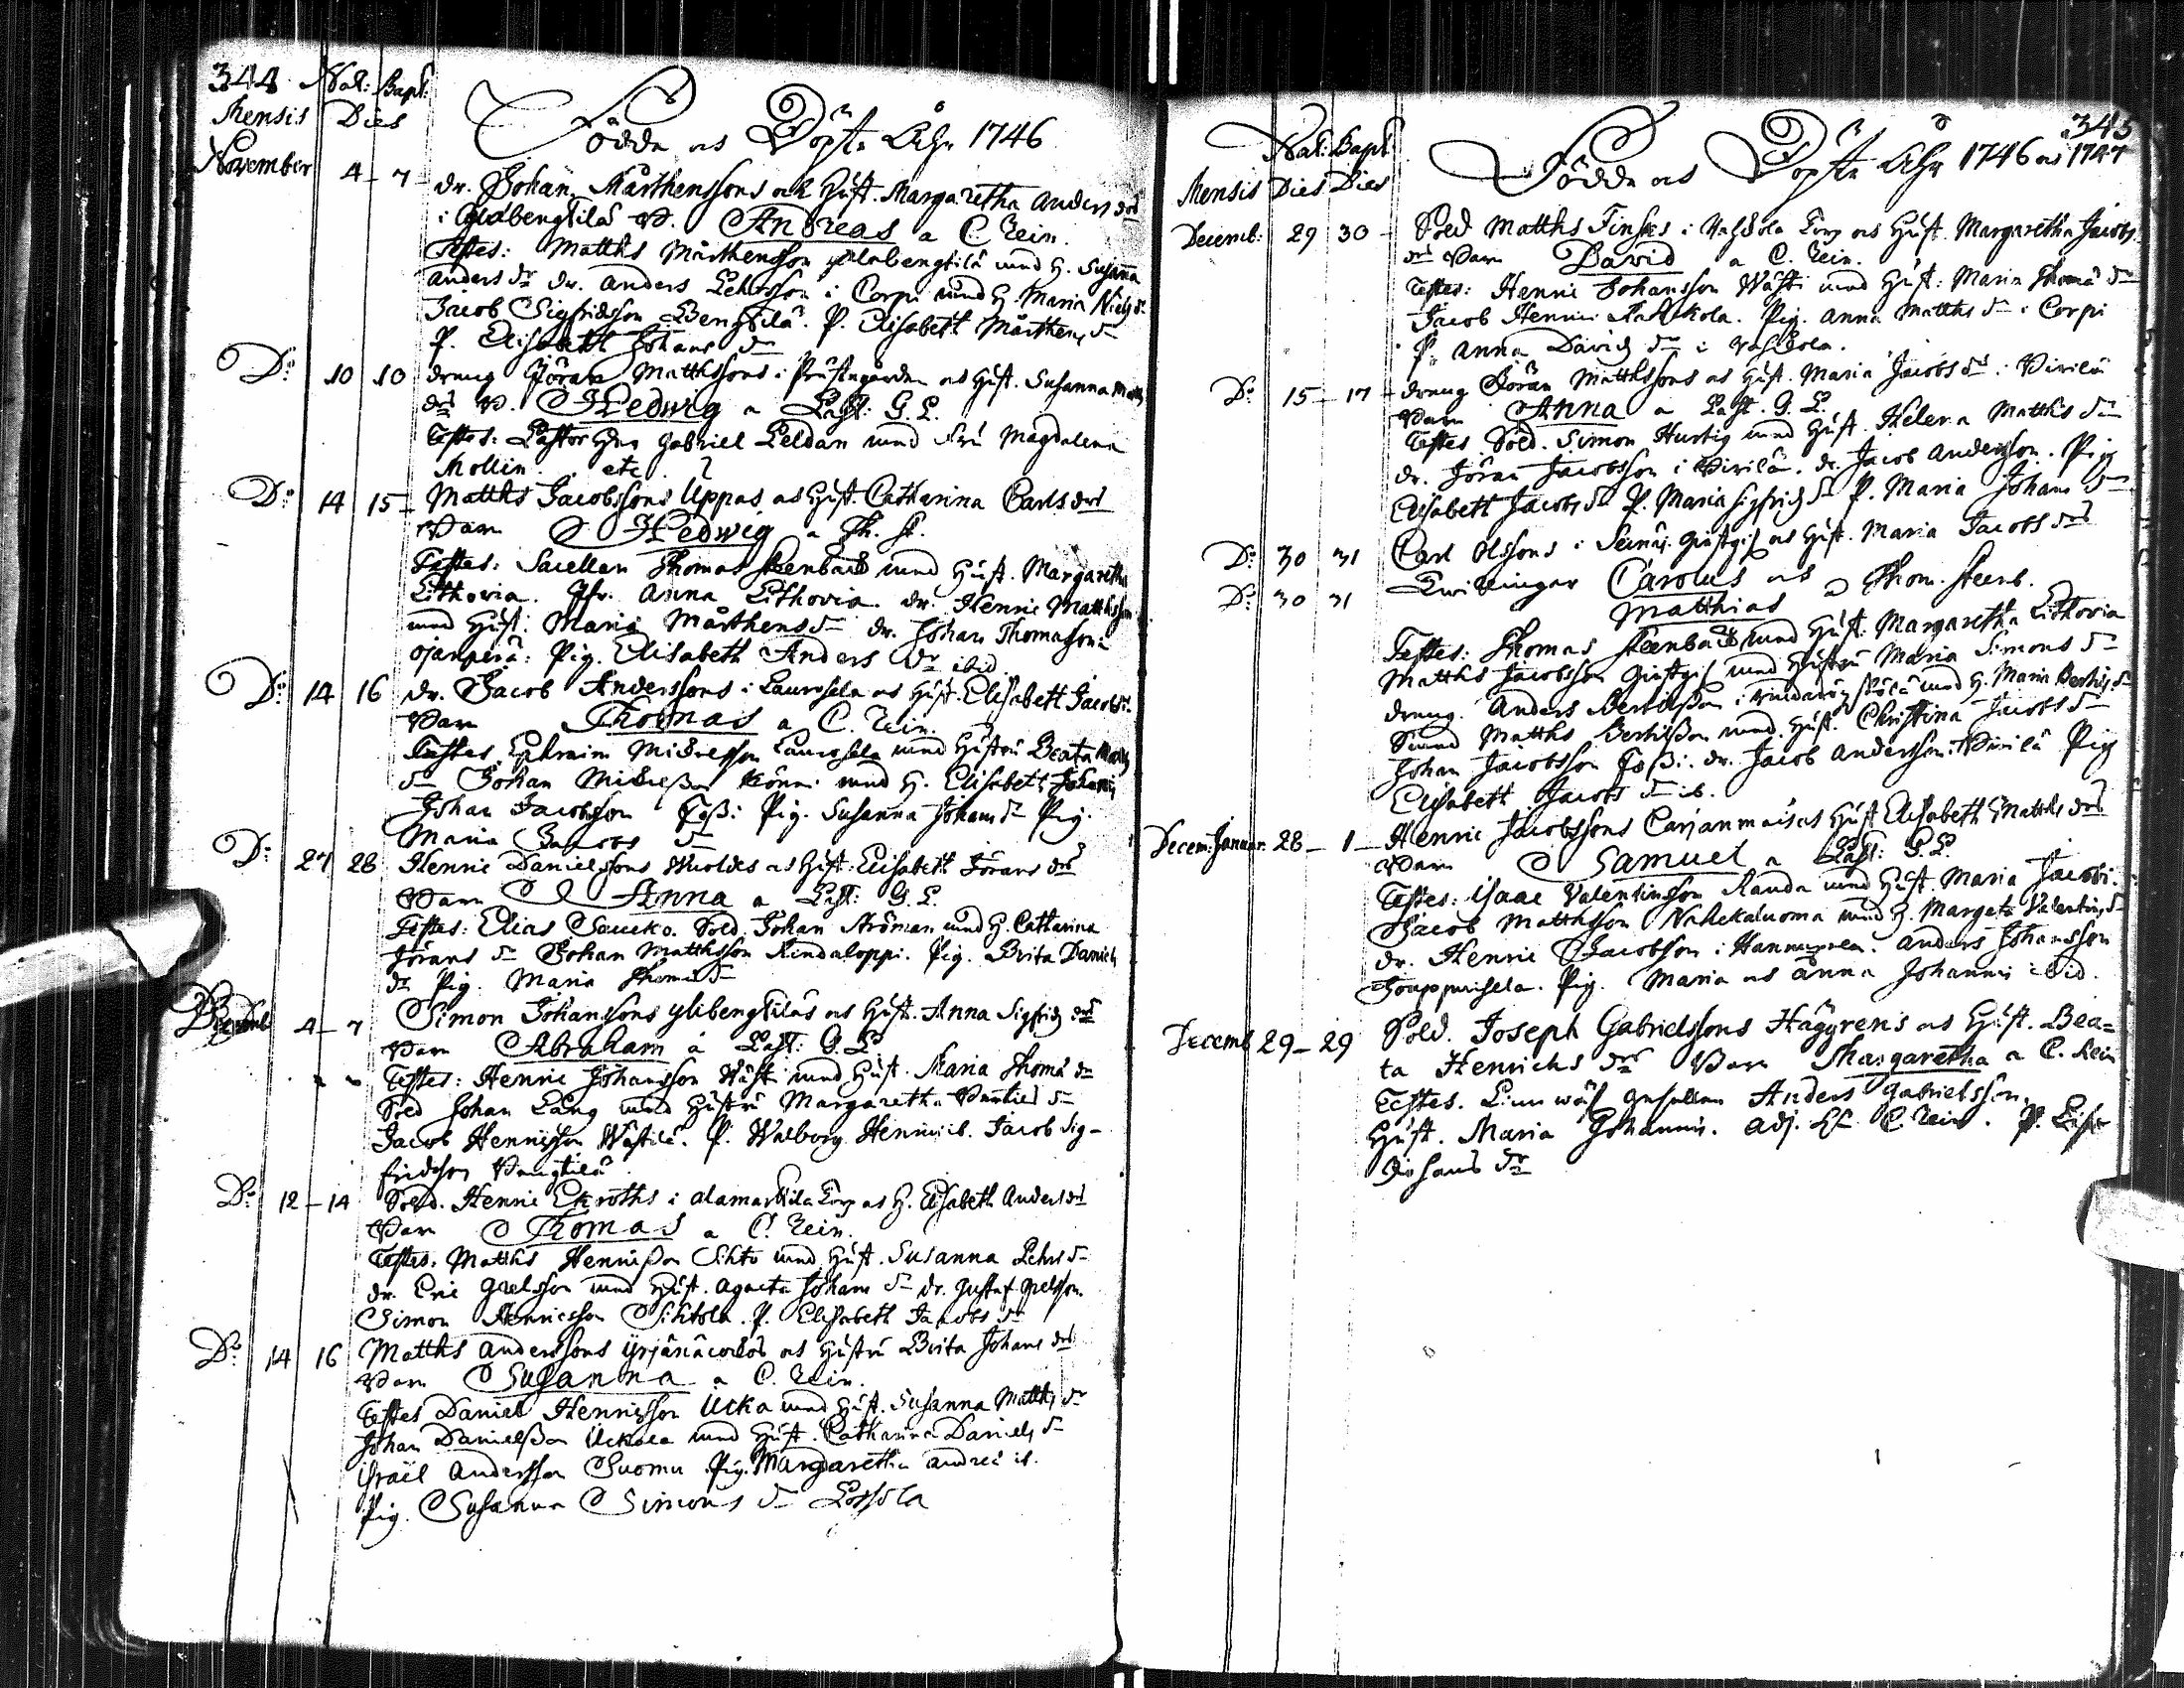 344. Nat: Bapt:
Mensis Dies
Födde och Döpte Åhr 1746
November 4-7- dr. Johan Mårthenssons och Hust. Margaretha Anders dr
i Glabengtilä B. Andreas a C. Rein.
Testes: Matths Mårthensson Alabengtilä med H. Susanna
Anders dr dr. Anders Pehrsson i Corpi med H. Maria Niels dr
Jacob Sigfridsson Bengtilä. P. Elisabeth Mårthens dr
P. Elisabeth Johans dr
Do 10 10 dreng Jöran Matthssons i Prästegården och Hust. Susanna Matts
drs B. Hedwig a Past: G. P.
Testes: Pastor Hr Gabriel Peldan med Fru Magdalena
Mollin etc.
Do 14 15- Matths Jacobssons Uppas och Hust. Catharina Carls drs
Barn Hedwig a Th. St.
Testes: Sacellan Thomas Steenback med Hust. Margaretha
Lithovia. Jfr. Anna Lithovia. dr. Henric Matthsson
med Hust. Maria Mårthens dr dr. Johan Thomasson i
Ojanperä: Pig. Elisabeth Anders dr ibid
Do 14 16 dr. Jacob Anderssons i Laurosela och Hust. Elisabeth Jacobs dr.
Barn Thomas a C. Rein.
Testes Ephraim Mickelsson Laurosela med Hustru Beata Matts
dr Johan Mickelsson Könni med H. Elisabeth Johans
Johan Jacobsson Passi: Pig. Susanna Johans dr Pig.
Maria Jacobs dr
Do 27 28 Henric Danielssons Wuoldes och Hust: Elisabeth Jörans drs
Barn Anna a Past: G. P.
Testes: Elias Saucko. Sold. Johan Ströman med H. Catharina
Jörans dr Johan Matthsson Rindaloppi. Pig. Brita Daniels
dr Pig. Maria Thomæ dr
Decemb 4-7 Simon Johanssons Ylibengtiläs och Hust. Anna Sigfrids drs
Barn Abraham a Past: G. P.
Testes: Henric Johansson Wästi med Hust. Maria Thomæ dr
Sold Johan Lång med Hustru Margaretha Bertils dr
Jacob Henricsson Wästilä. P. Walborg Henrici ib. Jacob Sig-
fridsson Bengtilä
Do 12-14 Sold. Henric Ekroths i Alamarkila Torp och H. Elisabeth Anders drs
Barn Thomas a C. Rein.
Testes. Matths Henricsson Sihto med Hust. Susanna Pehrs dr
dr. Eric Grelsson med Hust. Agneta Johans dr dr. Gustaf Grelsson.
Simon Henricsson Sihtola. P. Elisabeth Jacobs dr
Do 14 16 Matths Anderssons Yrjänäcoskos och Hustru Brita Johans drs
Barn Susanna a C. Rein.
Testes Daniel Henricsson Ucko med Hust. Susanna Matths dr
Johan Danielsson Uckola med Hust. Catharina Daniels dr
Israel Andersson Suomu Pig. Margaretha Andreæ ib.
Pig. Susanna Simons dr
345
Nat: Bapt:
Födde och Döpte Åhr 1746 och 1747
Mensis Dies Dies
Decemb: 29 30 - Sold Matths Finskes i Torp och Hust. Margaretha Jacobs
drs Barn David a C. Rein.
Testes: Henric Johansson Wästi med Hust: Maria Thomæ dr
Jacob Henrici. Pig. Anna Matths dr i Corpi
P. Anna Davids dr i
Do 15-17- dreng Jöran Matthssons och Hust. Maria Jacobs drs i Pirilä
Barn Anna a Past. G. P.
Testes Sold. Simon Hurtig med Hust. Helena Matths dr
dr. Jöran Jacobsson i Pirilä. dr. Jacob Andersson. Pig
Elisabeth Jacobs dr P. Maria Sigfrids dr P. Maria Johans dr
Do 30 31 Carl Olssons i Seinäj. Gästgif och Hust. Maria Jacobs drs
Do 30 31 Twillingar Carolus och a Thom. Steenb.
Matthias
Testes: Thomas Steenback med Hust. Margaretha Lithovia
Matths Jacobsson Gästgif med Hustru Maria Simons dr
dreng. Anders Bertilsson med H. Maria Bertils dr
Matths Bertilsson med Hust. Christina Jacobs dr
Johan Jacobsson Passi. dr. Jacob Andersson Pirilä Pig
Elisabeth Jacobs dr ib.
Decem: Januar. 28-1- Henric Jacobssons Carjanmaas och Hust Elisabeth Matths drs
Barn Samuel a Past: G. P.
Testes: Isaac Valentinsson Randa med Hust. Maria Jacobi.
Jacob Matthsson Nahckaluoma med H. Margeta Valentins dr
dr. Henric Jacobsson i. Anders Johansson
Jouppiusela. Pig. Maria och Anna Johannis ibid.
Decemb 29-29 Sold. Joseph Gabrielssons Häggrens och Hust. Bea=
ta Henrichs drs Barn Margaretha a C. Rein
Testes. Gesellen Anders Gabrielsson,
Hust. Maria Johannis. Adj. Hr C. Rein. P. Lisa
Johans dr